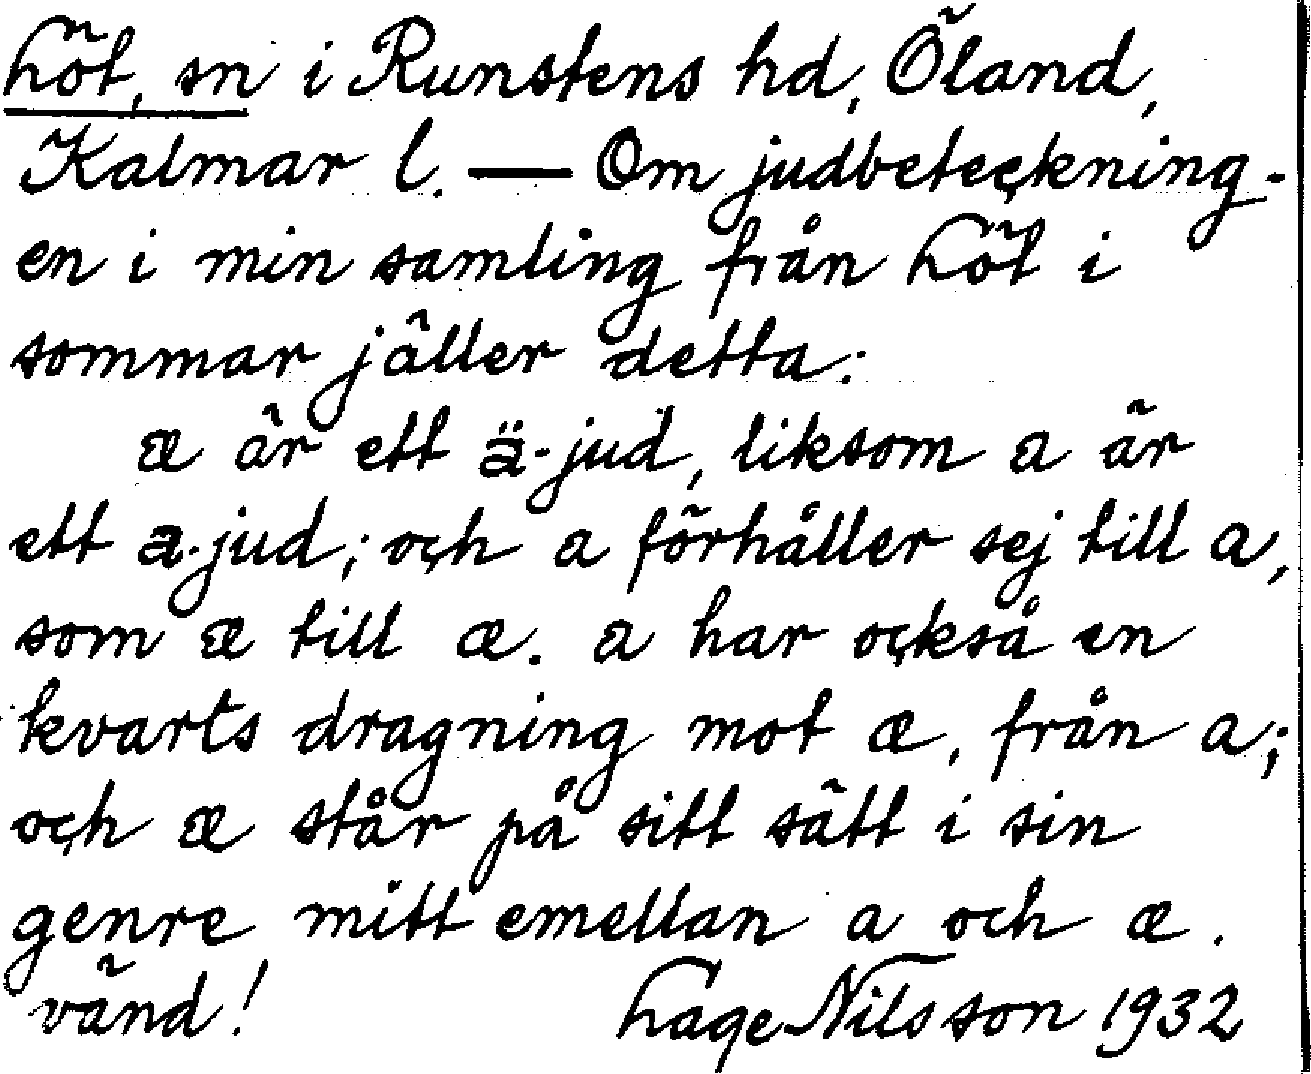 Löt, sn i Runstens hd, Öland,
Kalmar l. — Om judbeteckning-
en i min samling från Löt i
sommar jäller detta:
æ är ett ä-jud, liksom a är
ett a-jud; och a förhåller sej till a,
som æ till æ. a har också en
kvarts dragning mot æ, från a;
och æ står på sitt sätt i sin
genre mitt emellan a och æ.
vänd! Lage Nilsson 1932